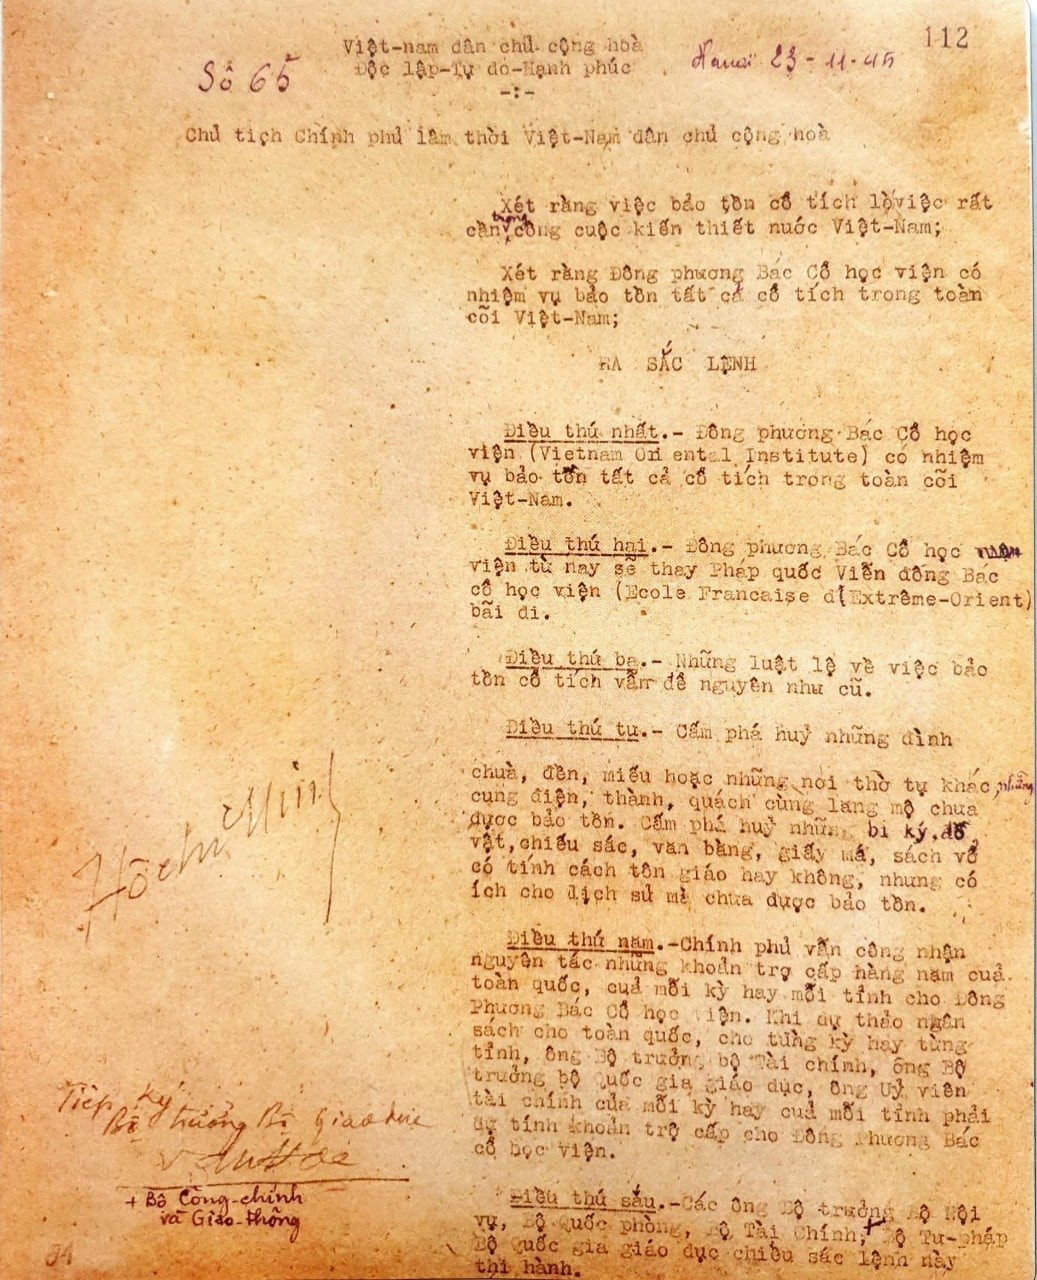 112
Việt-nam dân chủ cộng hoà
Số 65
Độc lập-Tự do-Hạnh phúc
Hanoi 23-11-45
-:-
Chủ tịch Chính phủ lâm thời Việt-Nam dân chủ cộng hoà
Xét rằng việc bảo tồn cổ tích là việc rất
cần trong công cuộc kiến thiết nước Việt-Nam;
Xét rằng Đông phương Bác Cổ học viện có
nhiệm vụ bảo tồn tất cả cổ tích trong toàn
cõi Việt-Nam;
RA SẮC LỆNH
Điều thứ nhất.- Đông phương Bác Cổ học
viện (Vietnam Oriental Institute) có nhiệm
vụ bảo tồn tất cả cổ tích trong toàn cõi
Việt-Nam.
Điều thứ hai.- Đông phương Bác Cổ học
viện từ nay sẽ thay Pháp quốc Viễn đông Bác
cổ học viện (Ecole Francaise d'Extrême-Orient)
bãi đi.
Điều thứ ba.- Những luật lệ về việc bảo
tồn cổ tích vẫn để nguyên như cũ.
Điều thứ tư.- Cấm phá huỷ những đình
chuà, đền, miếu hoặc những nơi thờ tự khác, những
cung điện, thành, quách cùng lăng mộ chưa
được bảo tồn. Cấm phá huỷ những bi ký, đồ,
vật, chiếu sắc, văn bằng, giấy má, sách vở
có tính cách tôn giáo hay không, nhưng có
ích cho lịch sử mà chưa được bảo tồn.
Điều thứ năm.-Chính phủ vẫn công nhận
nguyên tắc những khoản trợ cấp hàng năm cuả
toàn quốc, cuả mỗi kỳ hay mỗi tỉnh cho Đông
Phương Bác Cổ học viện. Khi dự thảo ngân
sách cho toàn quốc, cho từng kỳ hay từng
tỉnh, ông Bộ trưởng bộ Tài chính, ông Bộ
trưởng bộ Quốc gia giáo dục, ông Uỷ viên
tài chính của mỗi kỳ hay cuả mỗi tỉnh phải
dự tính khoản trợ cấp cho Đông Phương Bác
cổ học viện.
Điều thứ sáu.-Các ông Bộ trưởng Bộ Nội
vụ, Bộ Quốc phòng, Bộ Tài Chính,+ Bộ Tư-pháp
Bộ Quốc gia giáo dục chiểu sắc lệnh này
thi hành.
Hồ Chí Minh
Tiếp ký
Bộ trưởng Bộ Giáo dục
+ Bộ Công-chính
và Giao-thông